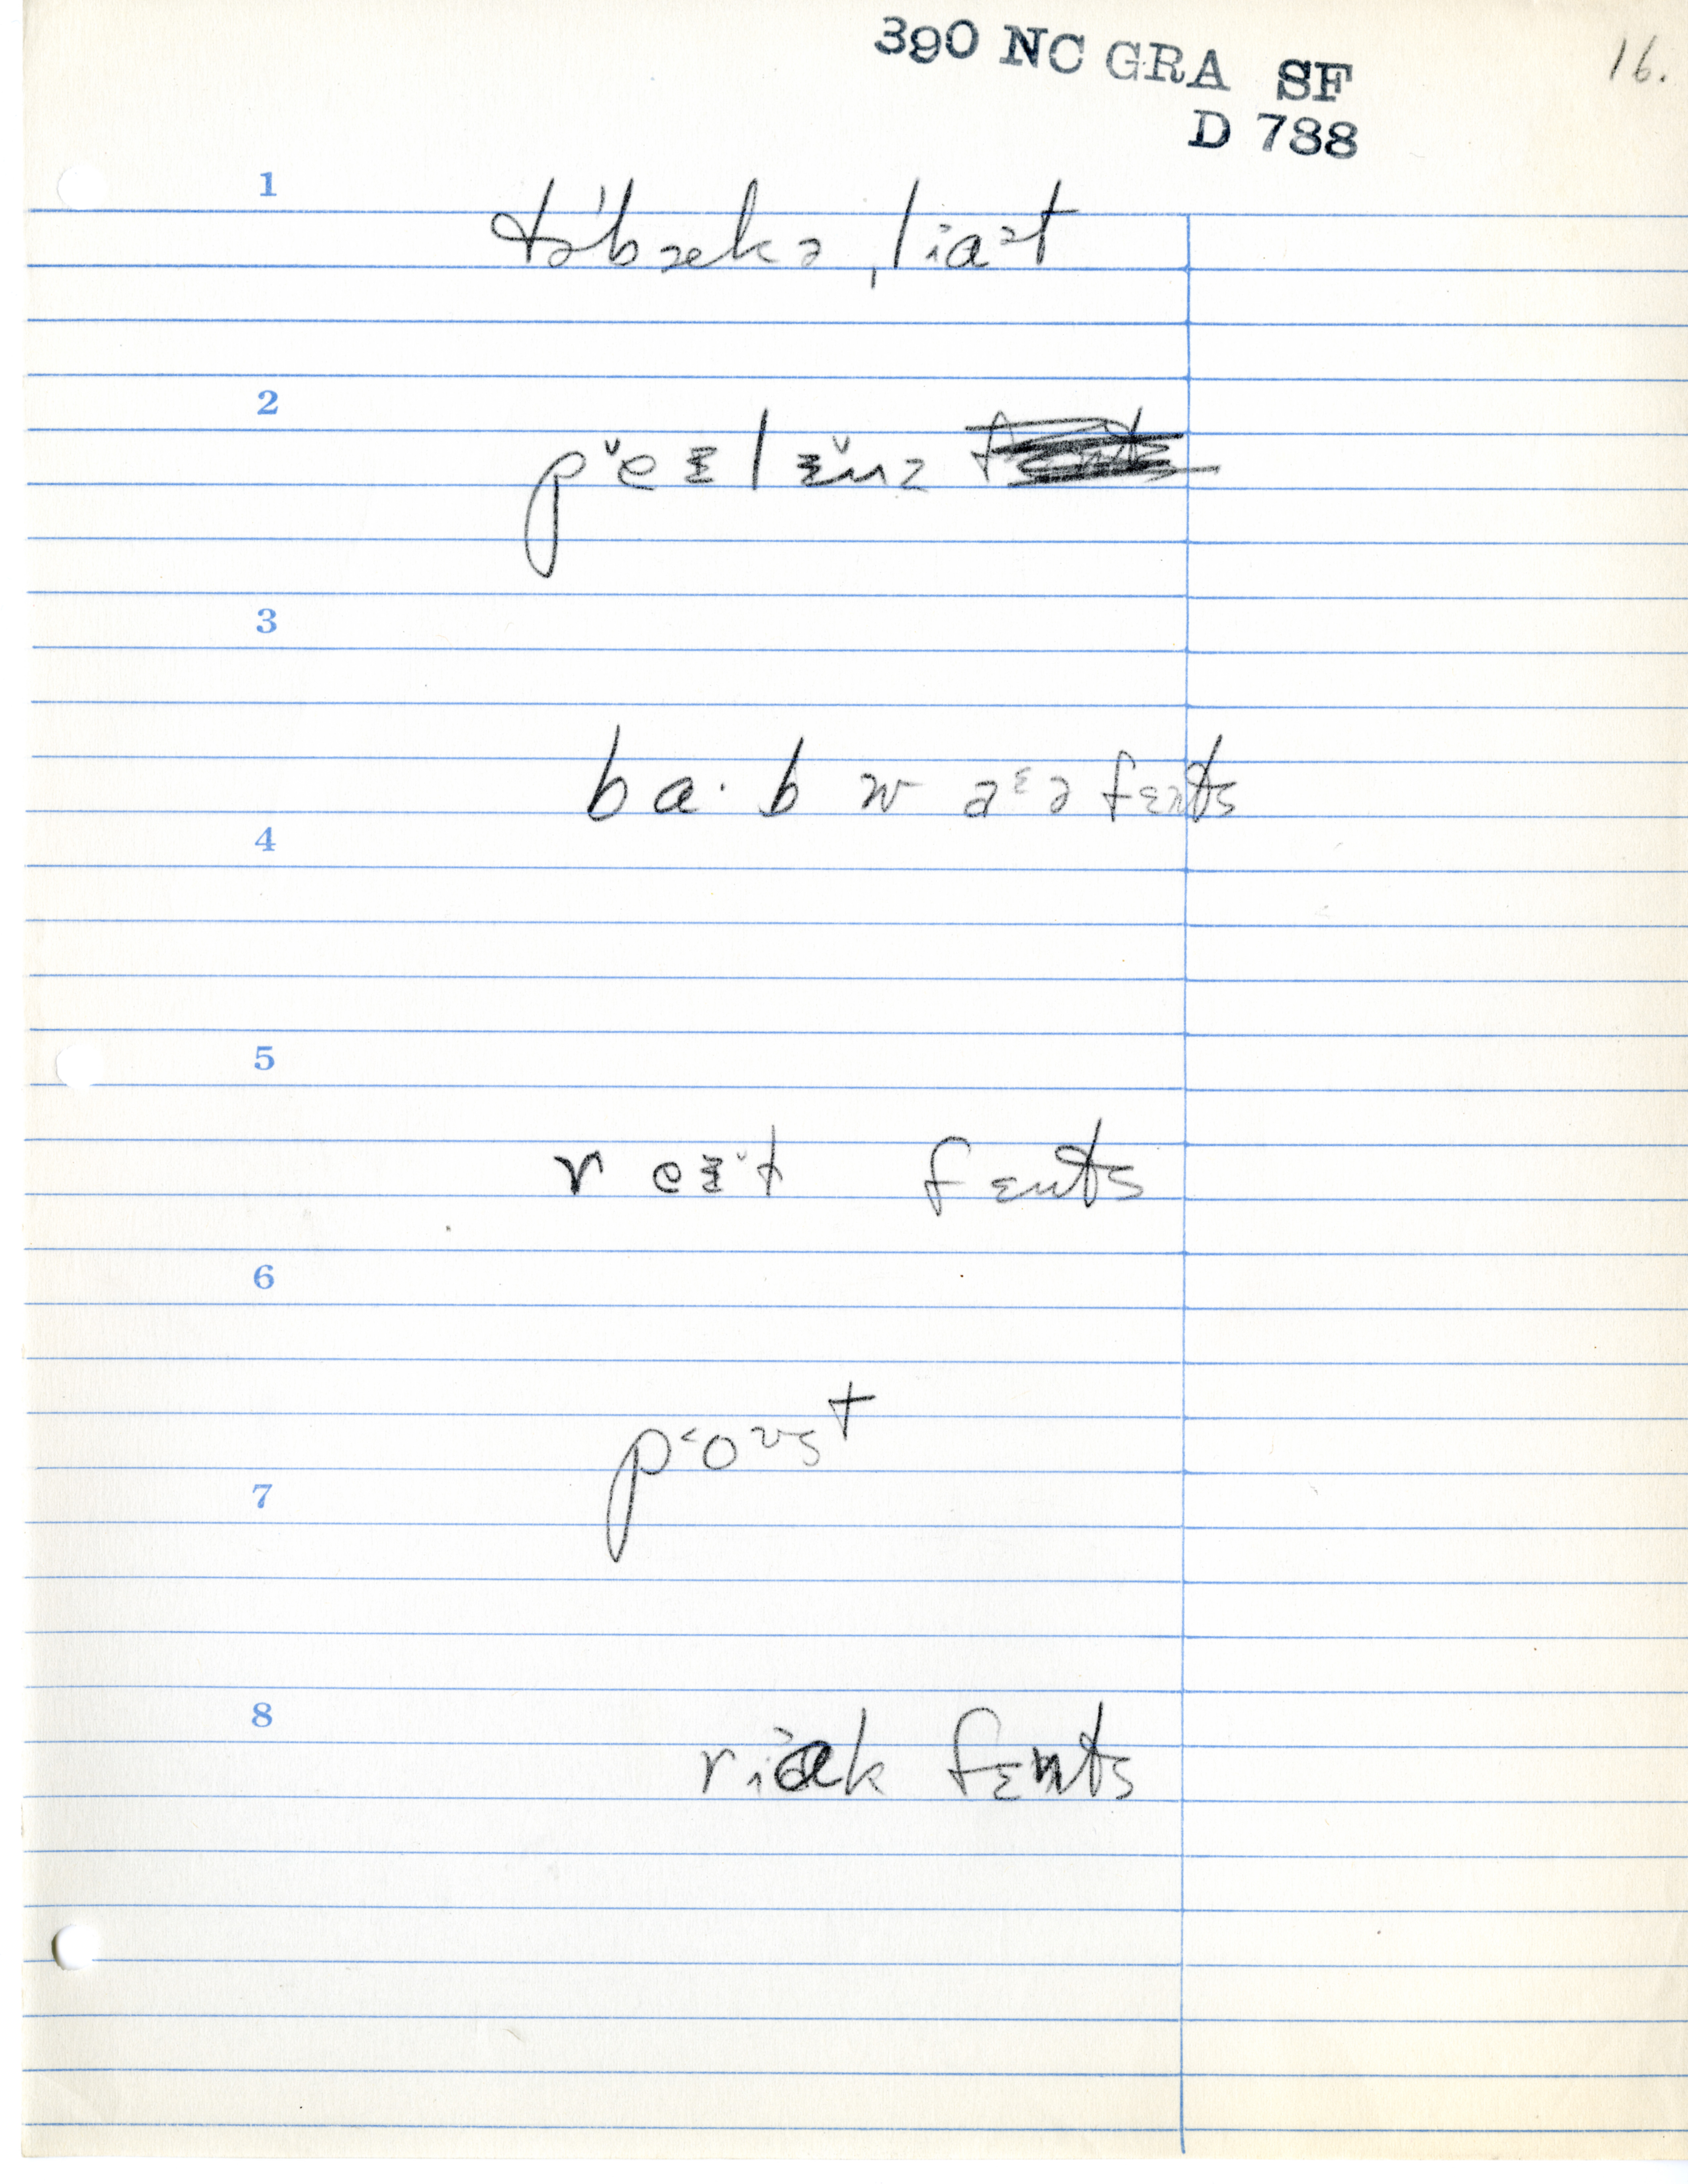 390 NC GRA SF
16.
D 788
1
təˈbækə ˌliɑət
2
pˇeɪlɪˇnz
3
ba·b w aᵋə fɛnts
4
5
r eɪˇt fɛnts
6
pʻoʊst
7
8
riɑk fɛnts